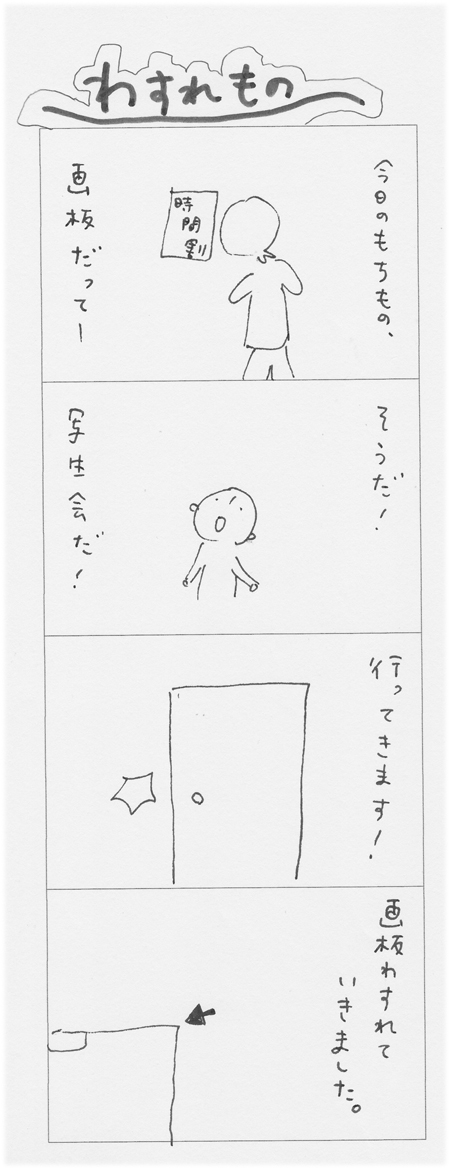 わすれもの
今日のもちもの、
時間割
画板だってー
そうだ！
写生会だ！
行ってきます！
画板わすれて
いきました。